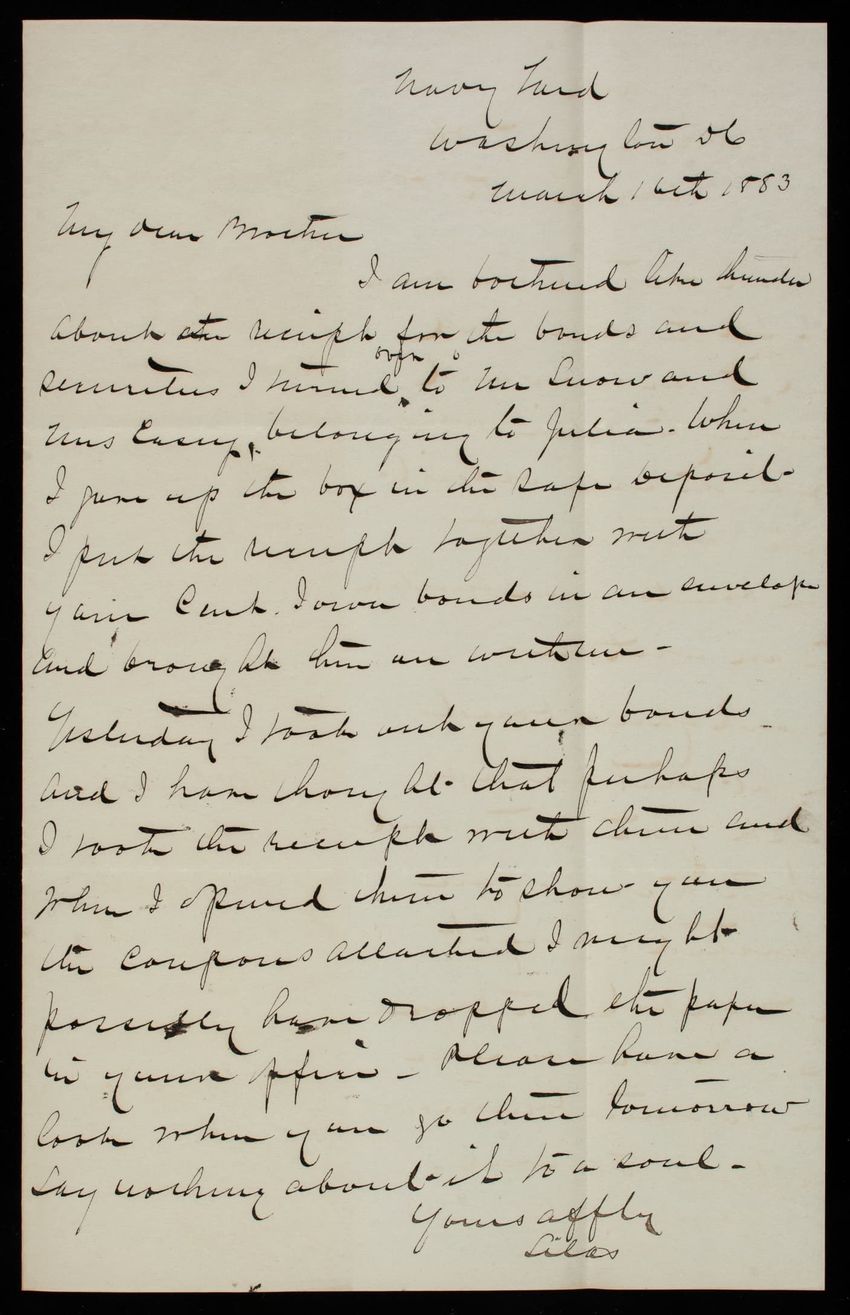 Navy Yard
Washington DC
March 16th 1883
My dear Brother
I am bothered like thunder
about the receipt for the bonds and
securities I turned over to Mr Snow and
Mrs Casey, belonging to Julia. When
I gave up the box in the Safe Deposit
I put the receipt together with
your Cent. Iowa bonds in an envelope
and brought him an
Yesterday I took out your bonds
and I have thought that perhaps
I took the receipt with them and
when I opened them to show you
the coupons attached I might
possibly have dropped the paper
in your office - Please have a
look when you go there tomorrow
Say nothing about it to a soul -
Yours affly
Silas